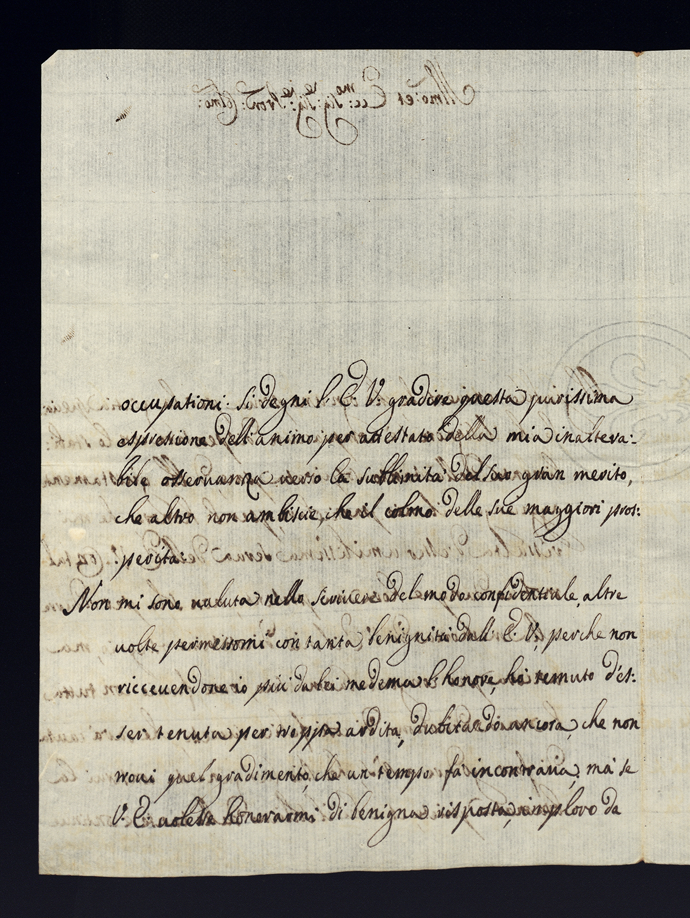 occupationi. Si degni l'E. V. gradire questa purissima
espressione dell'animo per attestato della mia inaltera-
bile osseruanza verso la sublimità del suo gran merito,
che altro non ambisce, che il colmo delle sue maggiori pros-
perità.
Non mi sono valuta nello scrivere del modo confidentiale, altre
volte permessomi con tanta benignità dall'E. V., perche non
riccevendone io più da lei medema l'honore, hò temuto d'es-
ser tenuta per troppo ardita, dubitando ancora, che non
trovi quel gradimento, che un tempo fà incontrava, mà se
V. E. volesse honorarmi di benigna risposta, imploro da